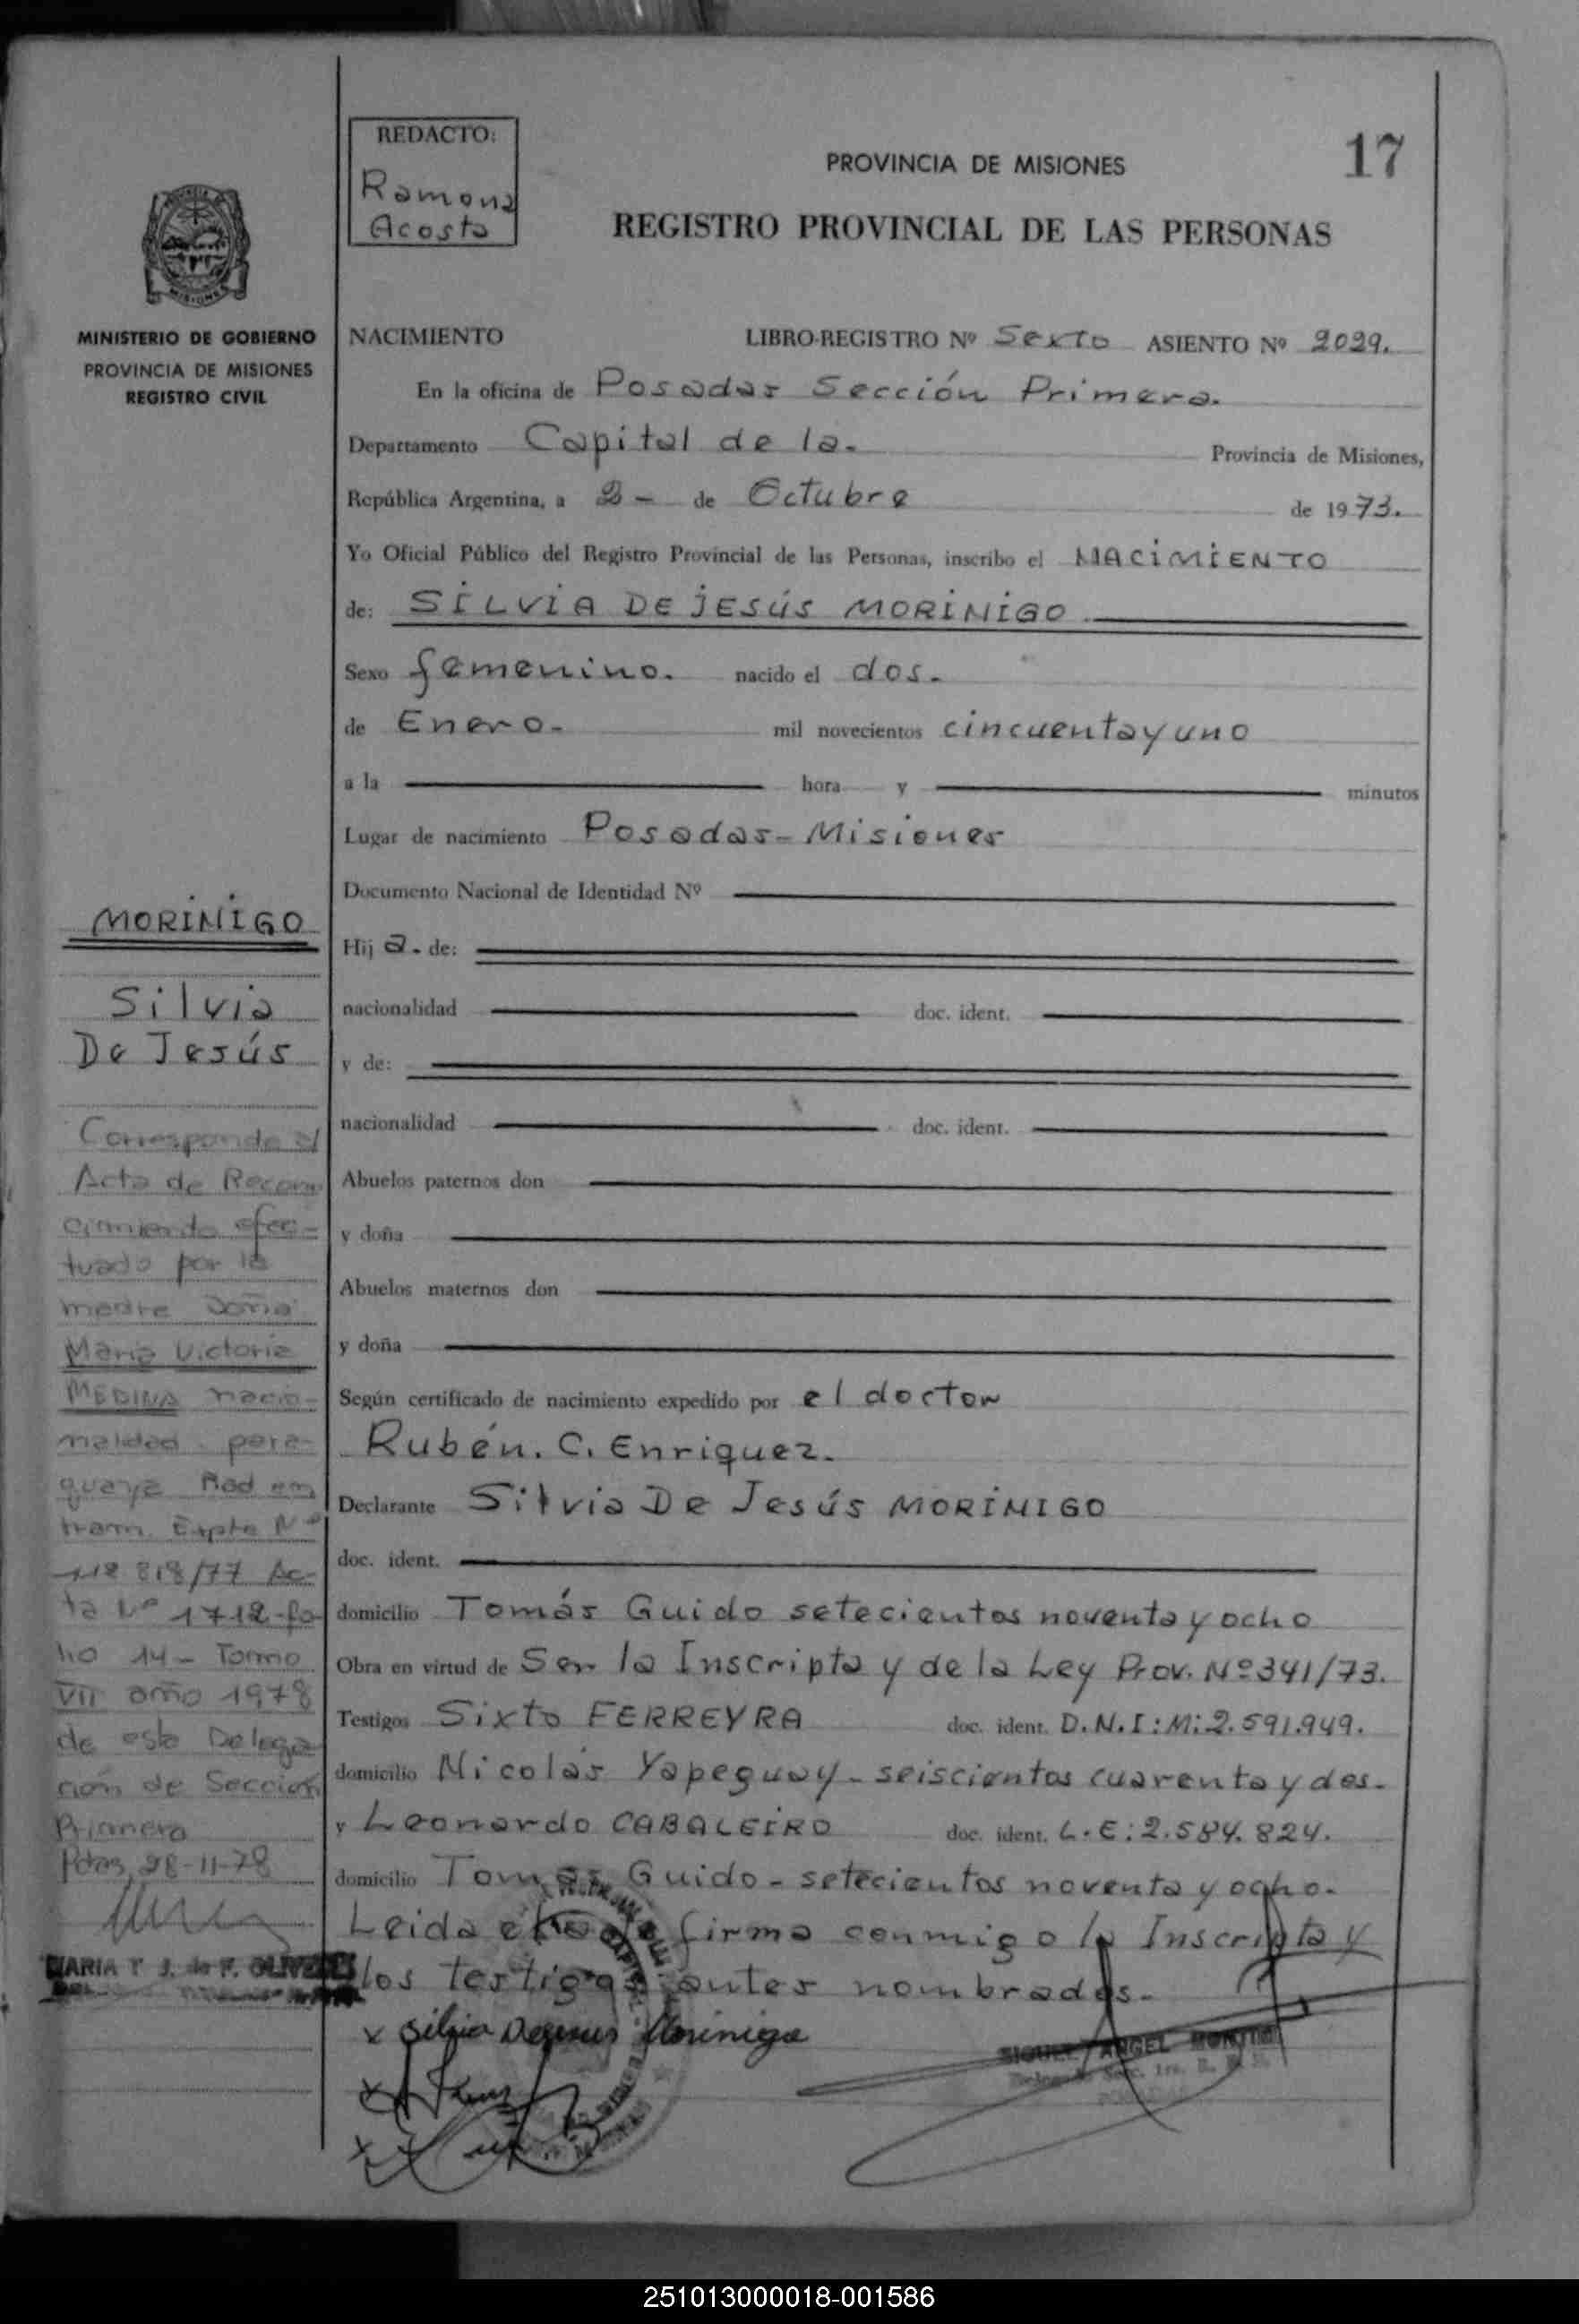 REDACTO:
Ramona
Acosta
17
PROVINCIA DE MISIONES
REGISTRO PROVINCIAL DE LAS PERSONAS
MINISTERIO DE GOBIERNO
PROVINCIA DE MISIONES
REGISTRO CIVIL
NACIMIENTO LIBRO-REGISTRO Nº Sexto ASIENTO Nº 2029.
En la oficina de Posadas Sección Primera.
Departamento Capital de la. Provincia de Misiones,
República Argentina, a 2- de Octubre de 1973.
Yo Oficial Público del Registro Provincial de las Personas, inscribo el NACIMIENTO
de: SILVIA DE JESÚS MORINIGO
Sexo femenino. nacido el dos.
de Enero- mil novecientos cincuenta y uno
a la hora y minutos
Lugar de nacimiento Posadas-Misiones
Documento Nacional de Identidad Nº
Hija. de:
nacionalidad doc. ident.
y de:
nacionalidad doc. ident.
Abuelos paternos don
y doña
Abuelos maternos don
y doña
Según certificado de nacimiento expedido por el doctor
Rubén. C. Enriquez.
Declarante Silvia De Jesús MORINIGO
doc. ident.
domicilio Tomás Guido setecientos noventa y ocho
Obra en virtud de Ser la Inscripta y de la Ley Prov. Nº 341/73.
Testigos Sixto FERREYRA doc. ident. D.N.I: M: 2.591.949.
domicilio Nicolás Yapeguay - seiscientos cuarenta y dos-
y Leonardo CABALEIRO doc. ident. L.E: 2.584.824.
domicilio Tomás Guido - setecientos noventa y ocho-
Leida el firma conmigo la Inscripta y
los testigos antes nombrados-
x Silvia Dejesus Morinigo
MIGUEL ANGEL
MORINIGO
Silvia
De Jesús
Corresponde el
Acta de Recono
cimiento efec-
tuado por la
madre Doña
Maria Victoria
MEDINA nacio-
nalidad para-
guaya Rad en
tram. Expte Nº
118 818/77 Ac-
ta Nº 1712-fo-
lio 14- Tomo
VII año 1978
de esta Delega
ción de Sección
Primera
Pdas, 28-11-78
MARIA T J. de F. OLIVE
251013000018-001586